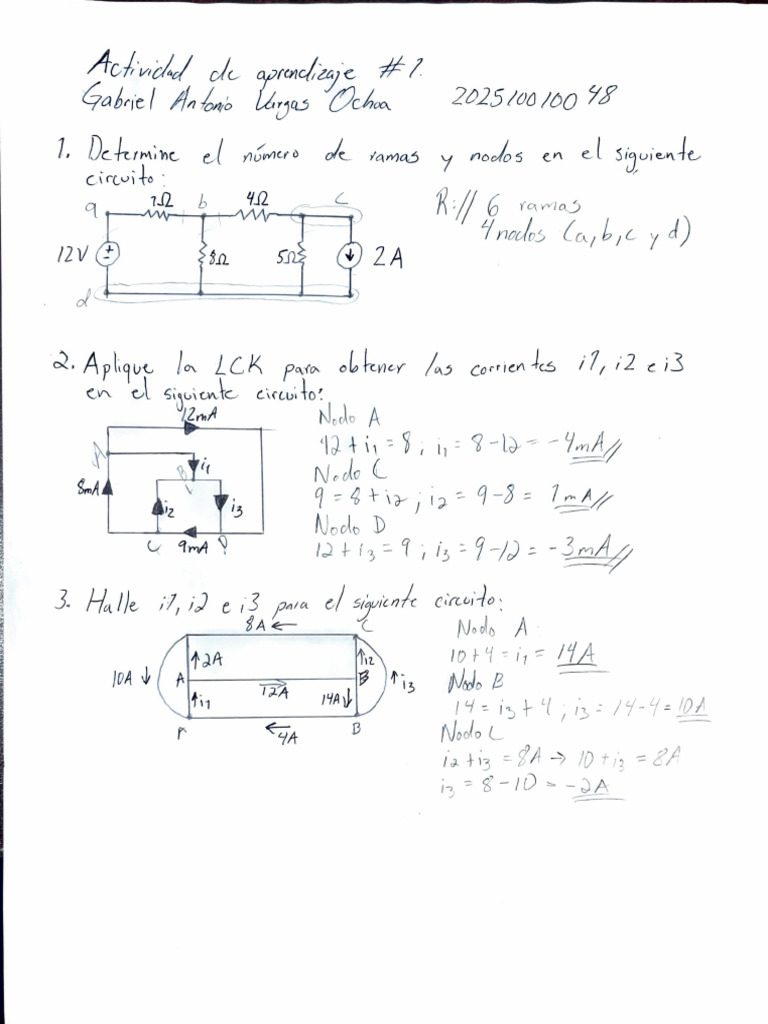 Actividad de aprendizaje #1.
Gabriel Antonio Vargas Ochoa 202510010048
1. Determine el número de ramas y nodos en el siguiente
circuito:
a 1Ω b 4Ω c
12V + - 8Ω 5Ω 2A
d
R:// 6 ramas
4 nodos (a, b, c y d)
2. Aplique la LCK para obtener las corrientes i1, i2 e i3
en el siguiente circuito:
12mA
A
B i1
8mA i2 i3
C 9mA D
Nodo A
12 + i1 = 8; i1 = 8-12 = -4mA//
Nodo C
9 = 8 + i2; i2 = 9-8 = 1mA//
Nodo D
12 + i3 = 9; i3 = 9-12 = -3mA//
3. Halle i1, i2 e i3 para el siguiente circuito:
8A ← C
↑2A ↑i2
10A ↓ A 12A → B ↑ i3
↑i1 14A↓
← 4A B
Nodo A
10+4 = i1 = 14A
Nodo B
14 = i3 + 4; i3 = 14-4 = 10A
Nodo C
i2 + i3 = 8A → 10 + i3 = 8A
i3 = 8-10 = -2A